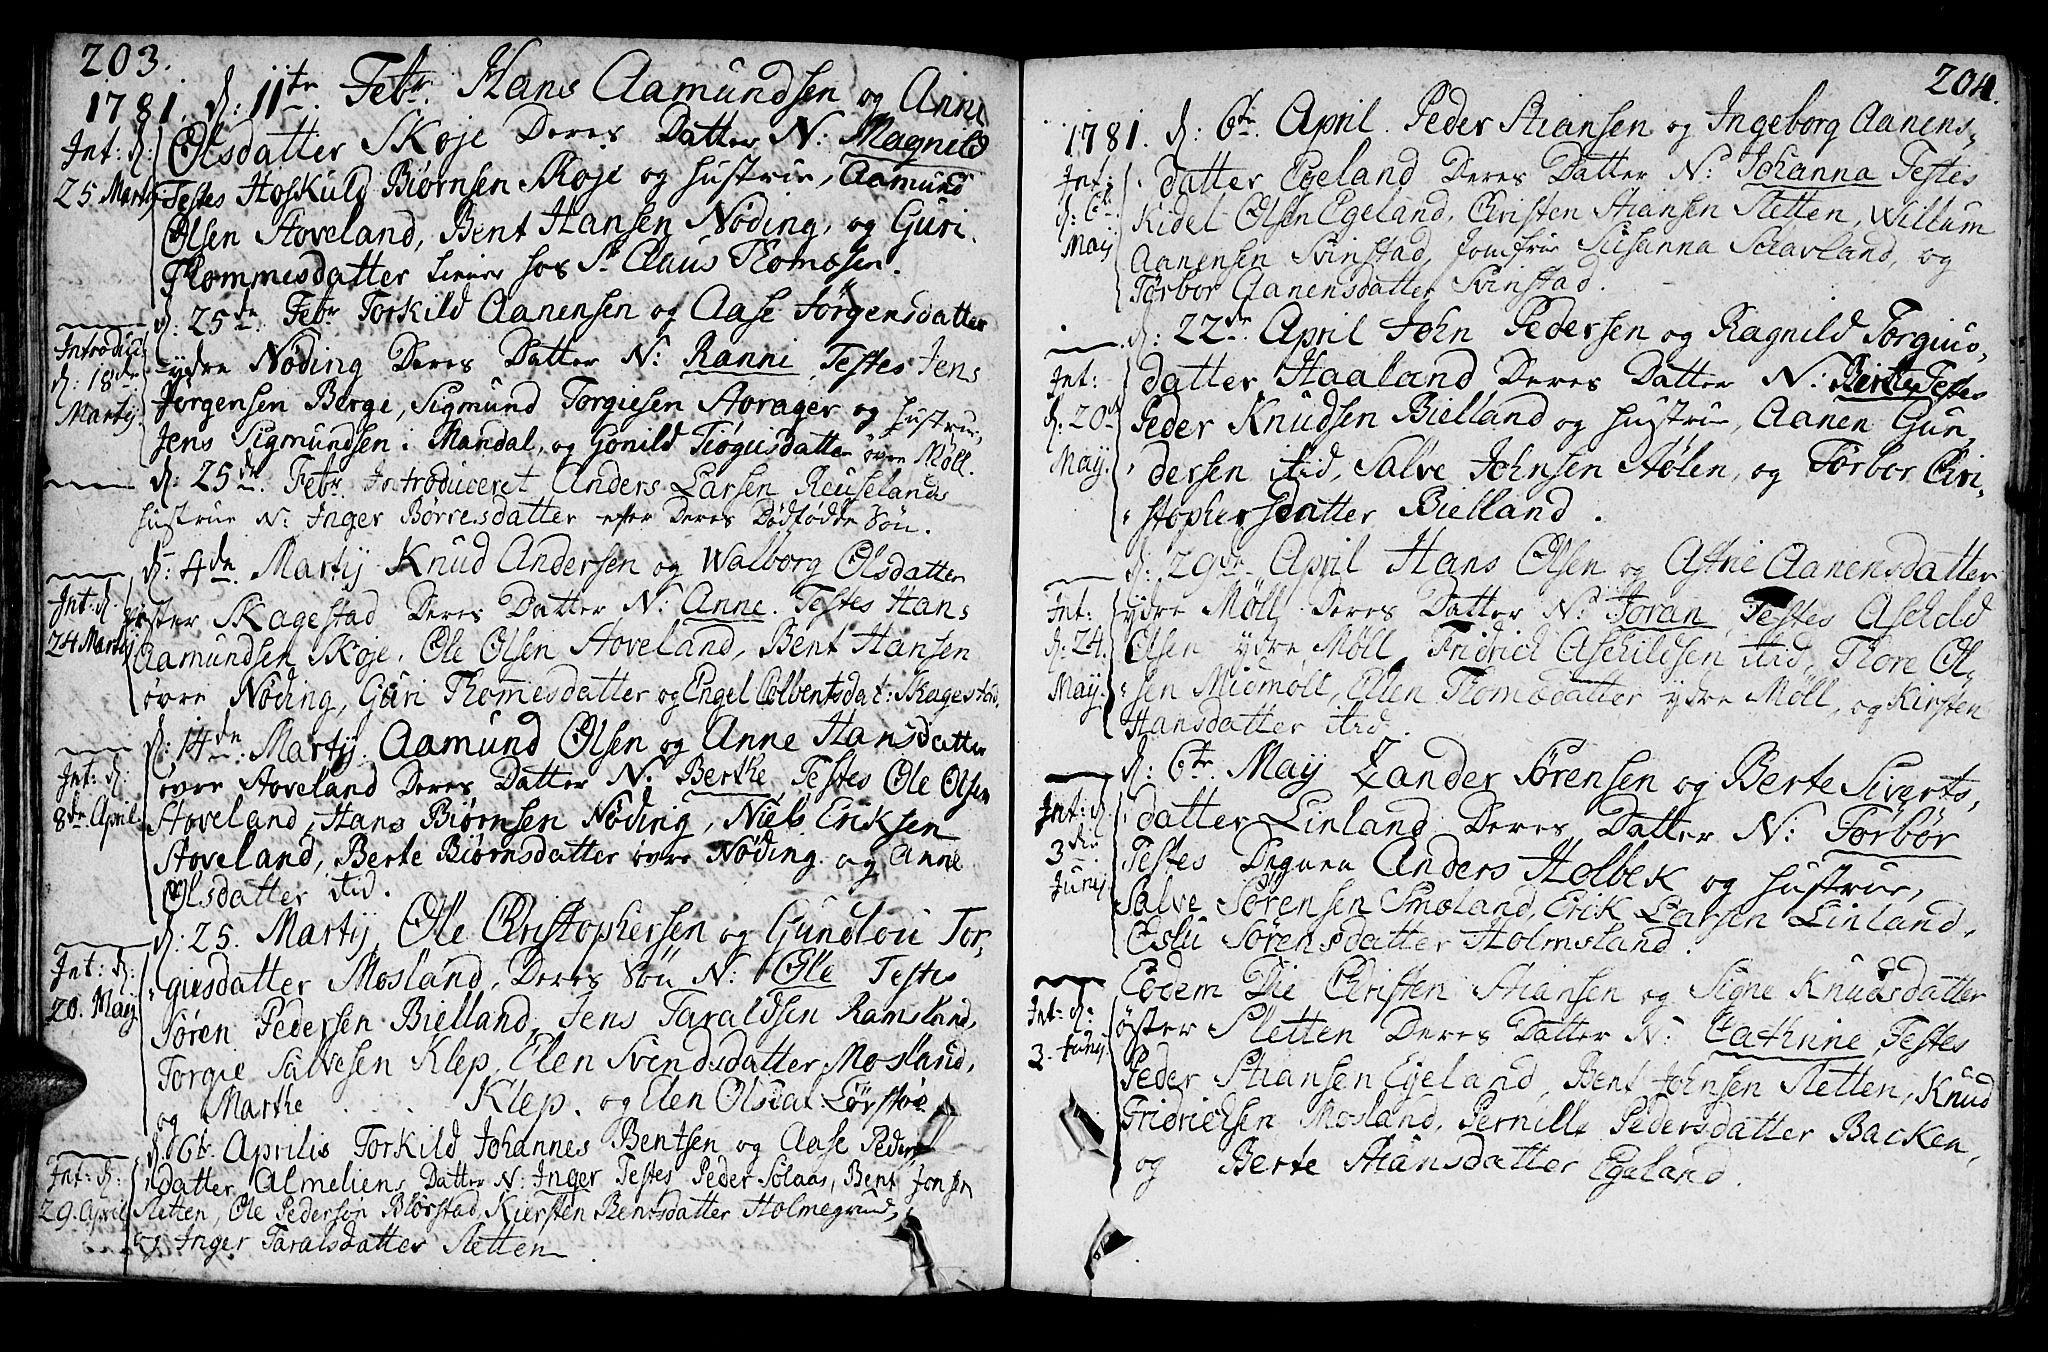 203.
1781. d: 11te Febr. Hans Aamundsen og Anne
Olsdatter Skoje Deres Datter N: Magnild
Int: d: 25 Martij
Testes Hoskuld Biørnsen Skoje og hustrue, Aamund
Olsen Stoveland, Bent Hansen Nøding, og Guri
Thommesdatter hos Sr Claus Thomæsen.
d: 25de Febr Torkild Aanensen og Aase Jørgensdatter
Introduc: d: 18de Martij.
ydre Nøding Deres Datter N: Ranni, Testes Jens
Jørgensen Berge, Sigmund Torgiesen Aorager og hustrue,
Jens Sigmundsen i Mandal, og Gonild Tiøgusdatter øvre Møll.
d: 25de Febr. Introduceret Anders Larsen Reuselands
hustrue N: Inger Børresdatter efter Deres Dødfødde Søn.
d: 4de Martij Knud Andersen og Walborg Olsdatter
Int: d. 24 Martij
øster Skagestad Deres Datter N: Anne. Testes Hans
Aamundsen Skoje, Ole Olsen Stoveland, Bent Hansen
øvre Nøding, Guri Thomesdatter og Engel Colbentsdat: Skagestad,
d: 14de Martij. Aamund Olsen og Anne Hansdatter
Int: d: 8de April.
øvre Stoveland Deres Datter N: Berthe, Testes Ole Olsen
Stoveland, Hans Biørnsen Nøding, Niels Eriksen
Stoveland, Berte Biørnsdatter øvre Nøding og Anne
Olsdatter itid.
d: 25. Martij, Ole Christophersen og Gundlou Tor,
Int: d: 20. Maij
giusdatter Mosland, Deres Søn N: Ole Testes
Søren Pedersen Bielland, Jens Taraldsen Ramsland,
Torgie Salvesen Klep, Elen Svendsdatter Mosland,
og Marthe . . . Klep. og Elen Olsdat. Lørstøe
d: 6te Aprilis Torkild Johannes Bentsen og Aase Peders
Int: d: 29. April
datter Almeliens Datter N: Inger Testes Peder Solaas, Bent Jonsen
Sletten, Ole Pedersøn Blørstad, Kiersten Bentsdatter Holmegrund,
og Inger Taralsdatter Sletten
204.
1781. d: 6te April. Peder Stiansen og Ingeborg Aanens,
Int: d: 6te Maij
datter Egeland Deres Datter N: Johanna Testes
Kidel Olsen Egeland, Christen Stiansen Sletten, Willum
Aanensen Svinstad, Jomfrue Susanna Schavland, og
Tørbor Aanensdatter Svinstad.
d: 22de April John Pedersen og Ragnild Torgius,
Int: d: 20de Maij.
datter Haaland Deres Datter N: Berthe, Testes
Peder Knudsen Bielland og hustrue, Aanen Gun,
dersen itid, Salve Johnsen Stølen, og Tørbor Chri,
stophersdatter Bielland.
d: 29de April Hans Olsen og Astrie Aanensdatter
Int: d: 24. Maij.
ydre Møll Deres Datter N: Joran, Testes Aschild
Olsen ydre Møll, Fridrich Aschildsen itid, Thore Ol,
sen Midmøll, Ellen Thomædatter ydre Møll, og Kirsten
Hansdatter itid.
d: 6te Maij Zander Sørensen og Berte Siverts,
Int: d: 3de Junij
datter Linland Deres Datter N: Torbør
Testes Degnen Anders Holbek og hustrue,
Salve Sørensen Smøland, Erik Larsen Linland,
Eslu Sørensdatter Holmsland.
Eodem Die Christen Stiansen og Signe Knudsdatter
Int: d: 3. Junij
øster Sletten Deres Datter N: Cathrine, Testes
Peder Stiansen Egeland, Bent Johnsen Sletten, Knud
Fridrichsen Mosland, Pernille Pedersdatter Backen,
og Berte Stiansdatter Egeland.